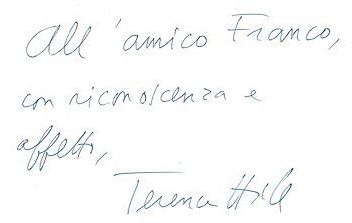 All'amico Franco,
con riconoscenza e
affetto,
Terence Hill